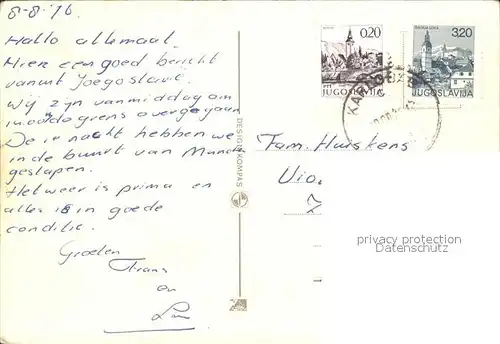 8-8-'76
Hallo allemaal.
Hier een goed bericht
vanuit Joegoslavië.
Wij zijn vanmiddag om
de grens overgegaan
De nacht hebben we
in de buurt van
geslapen.
Het weer is prima en
alles is in goede
conditie.
Groeten
Frans
en
DESIGN KOMPAS
0,20
JUGOSLAVIJA
3,20
JUGOSLAVIJA
Fam. Huiskens
privacy protection
for AK-Ansichtskarten.de